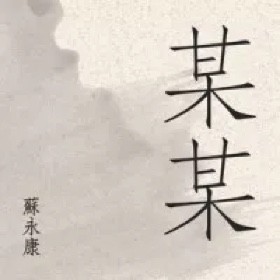 某某
蘇永康